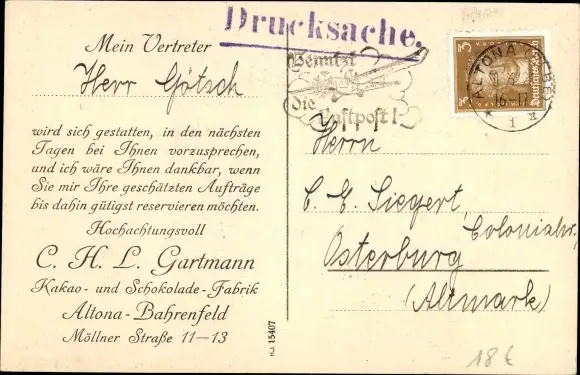 Drucksache.
Mein Vertreter
Herr Götsch
wird sich gestatten, in den nächsten
Tagen bei Ihnen vorzusprechen,
und ich wäre Ihnen dankbar, wenn
Sie mir Ihre geschätzten Aufträge
bis dahin gütigst reservieren möchten.
Hochachtungsvoll
C. H. L. Gartmann
Kakao- und Schokolade-Fabrik
Altona-Bahrenfeld
Möllner Straße 11—13
KJ 15407
Benutzt
die
Luftpost!
3 3
Deutsches Reich
ALTONA (ELBE)
1
Herrn
C. E. Siegert,
Colonialw.
Osterburg
(Altmark)
18 €